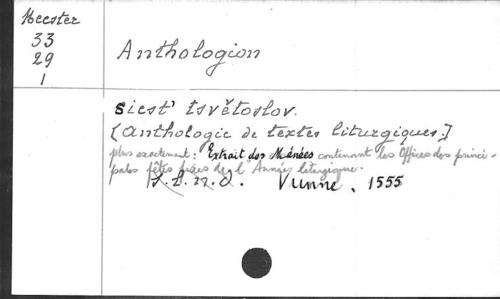 Meester
33
29
1
Anthologion
siest' tsvětoslov.
[Anthologie de textes liturgiques.]
plus exactement: Extrait des Ménées contenant les Offices des princi-
pales fêtes fixes de l'Année liturgique.
Vienne. 1555